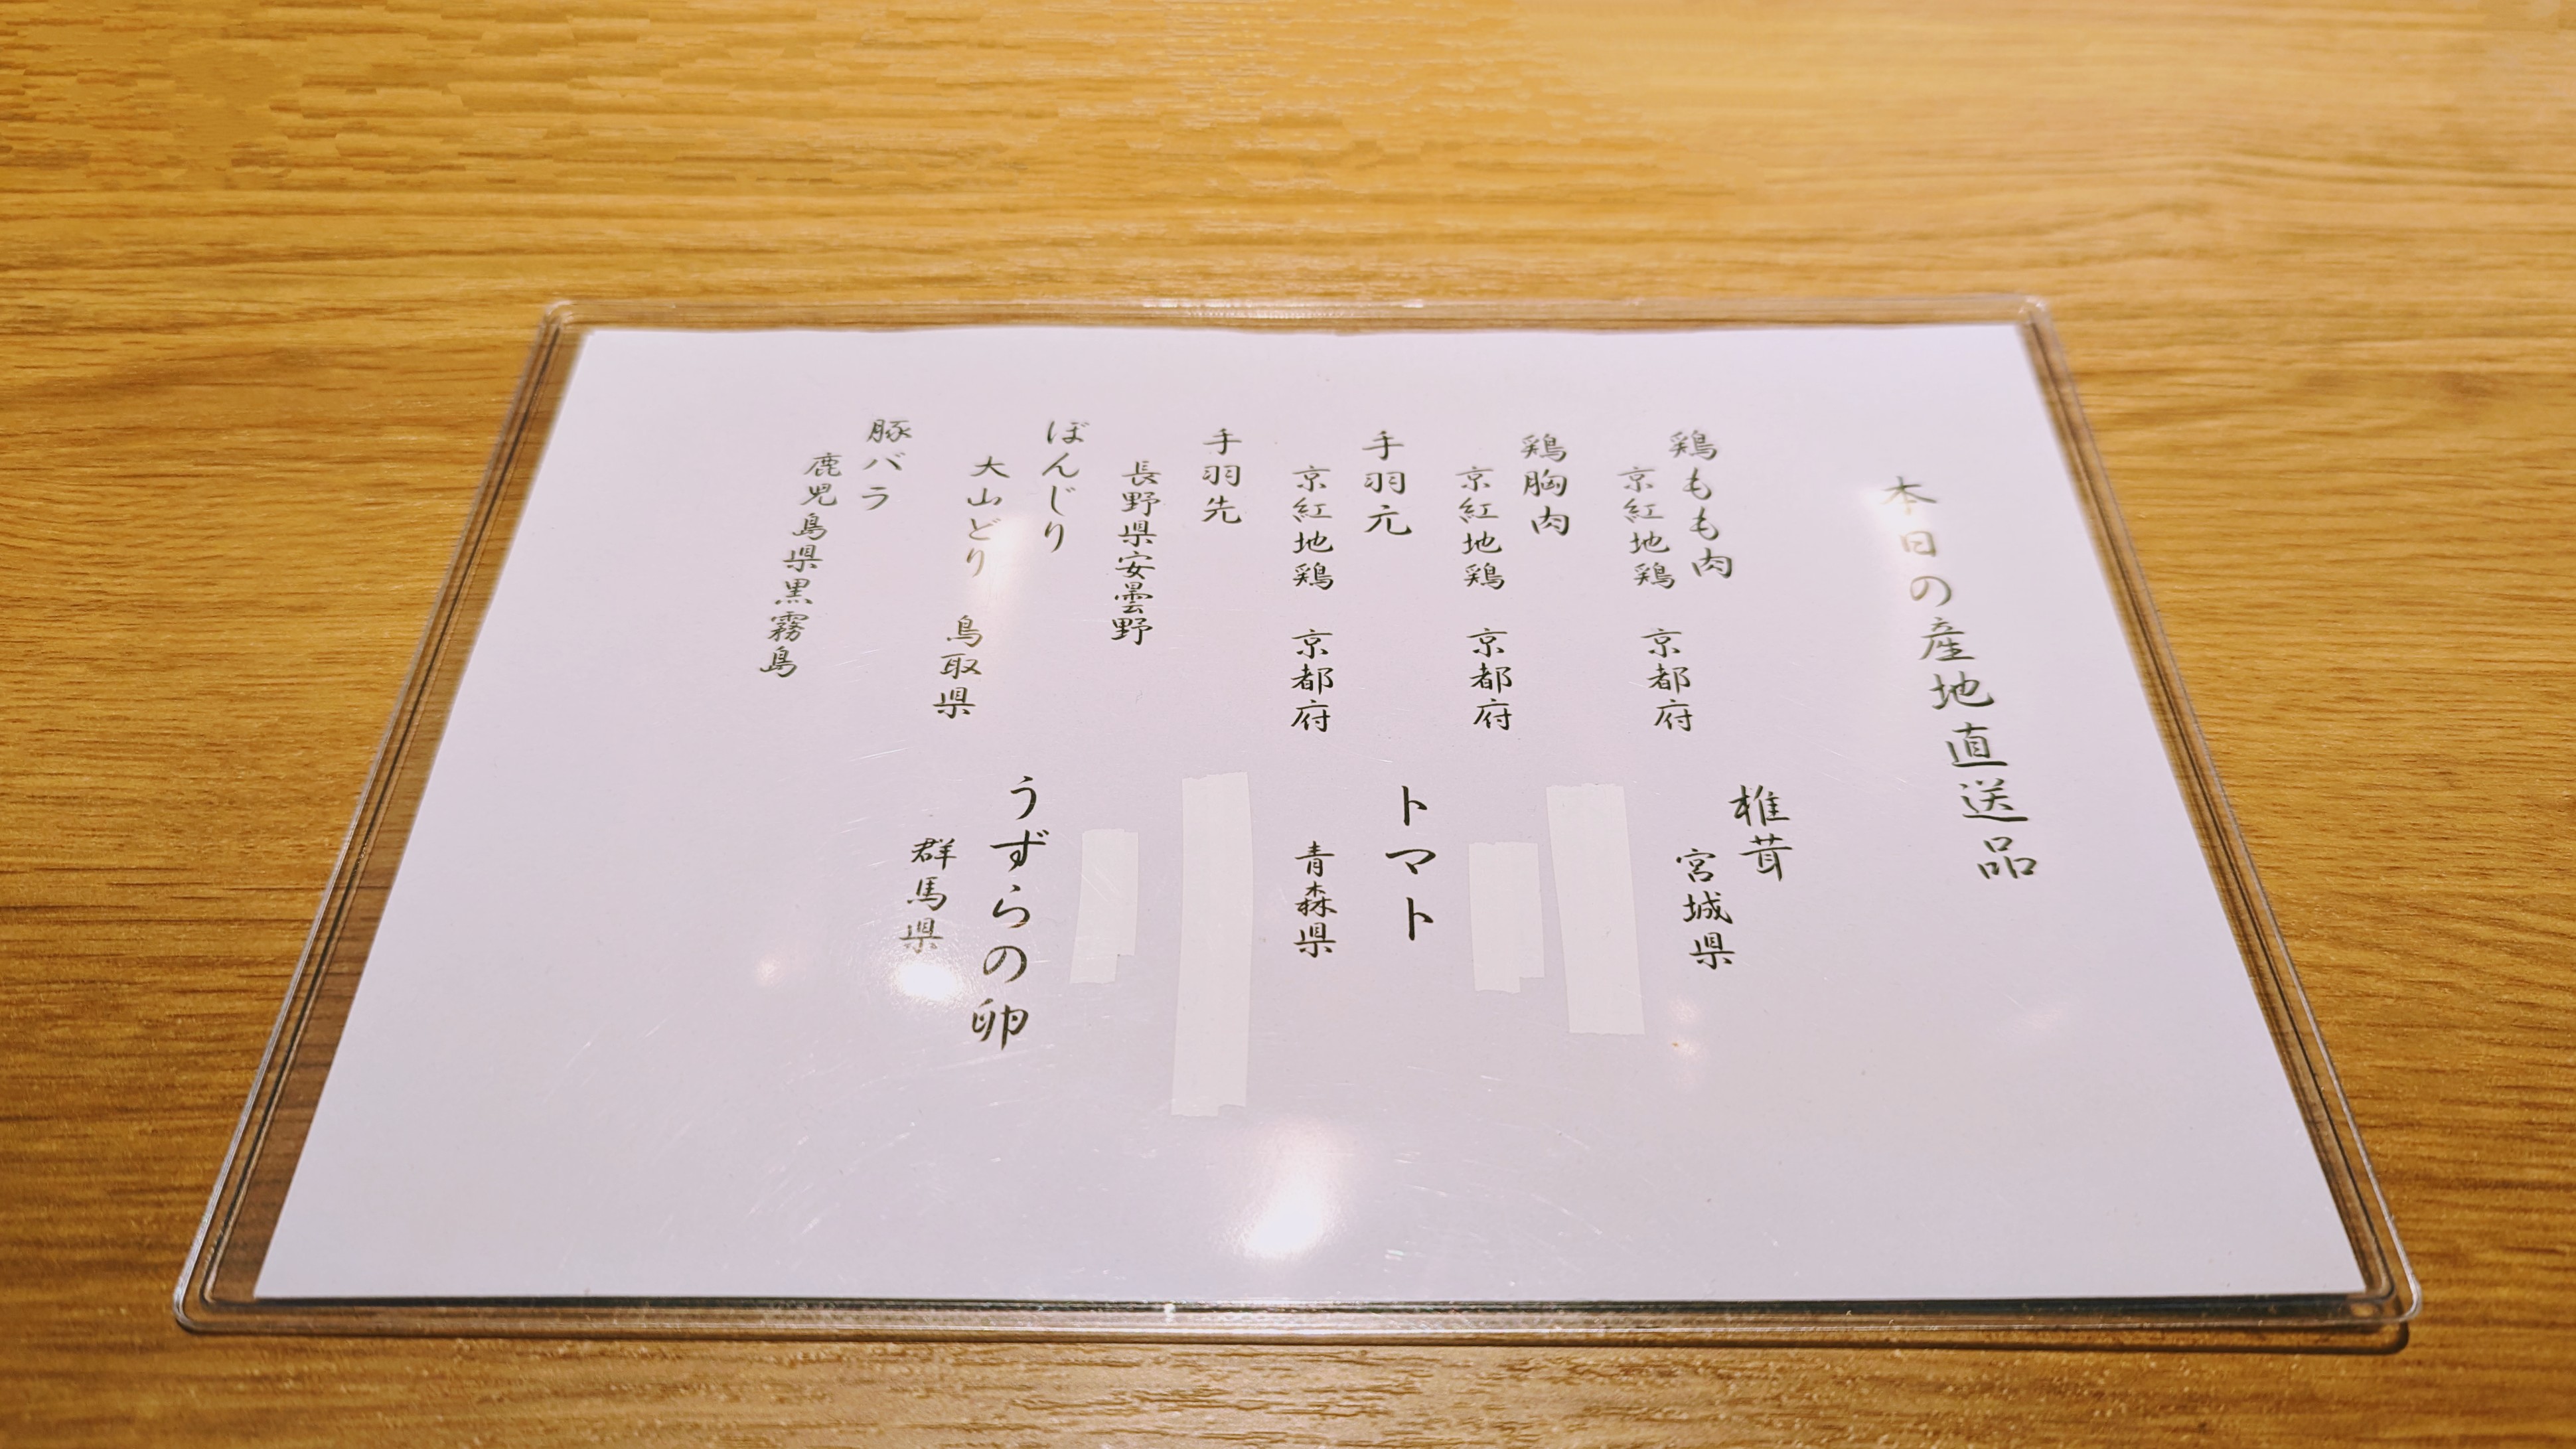 本日の産地直送品
鶏もも肉
京紅地鶏 京都府
鶏胸肉
京紅地鶏 京都府
手羽元
京紅地鶏 京都府
手羽先
長野県安曇野
ぼんじり
大山どり 鳥取県
豚バラ
鹿児島県黒霧島
椎茸
宮城県
トマト
青森県
うずらの卵
群馬県